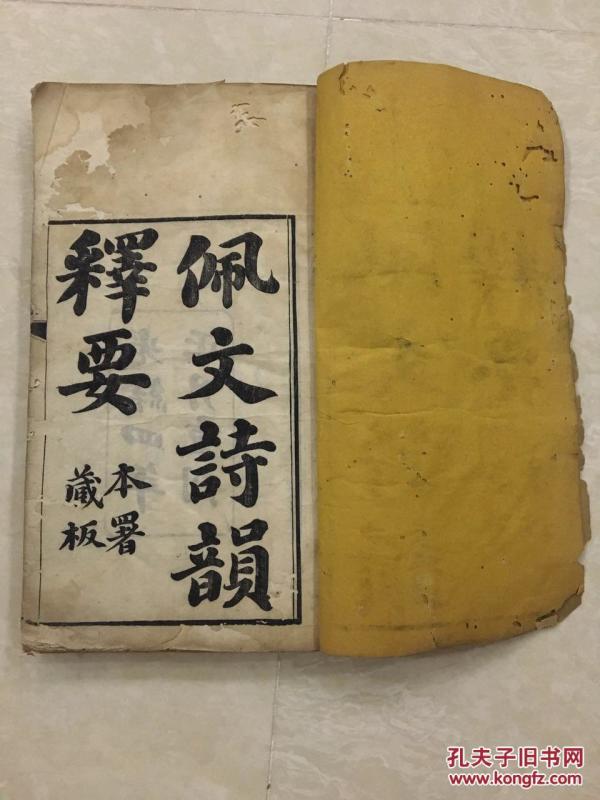 佩文詩韻
釋要
本署
藏板
孔夫子旧书网
www.kongfz.com